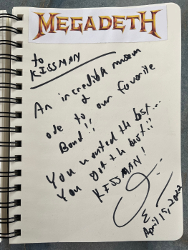 MEGADETH
to
KISSMAN
An incredible museum
&
ode to our favorite
Band!!
You wanted the best...
You got the best!!
KISSMAN!
April 15, 2022